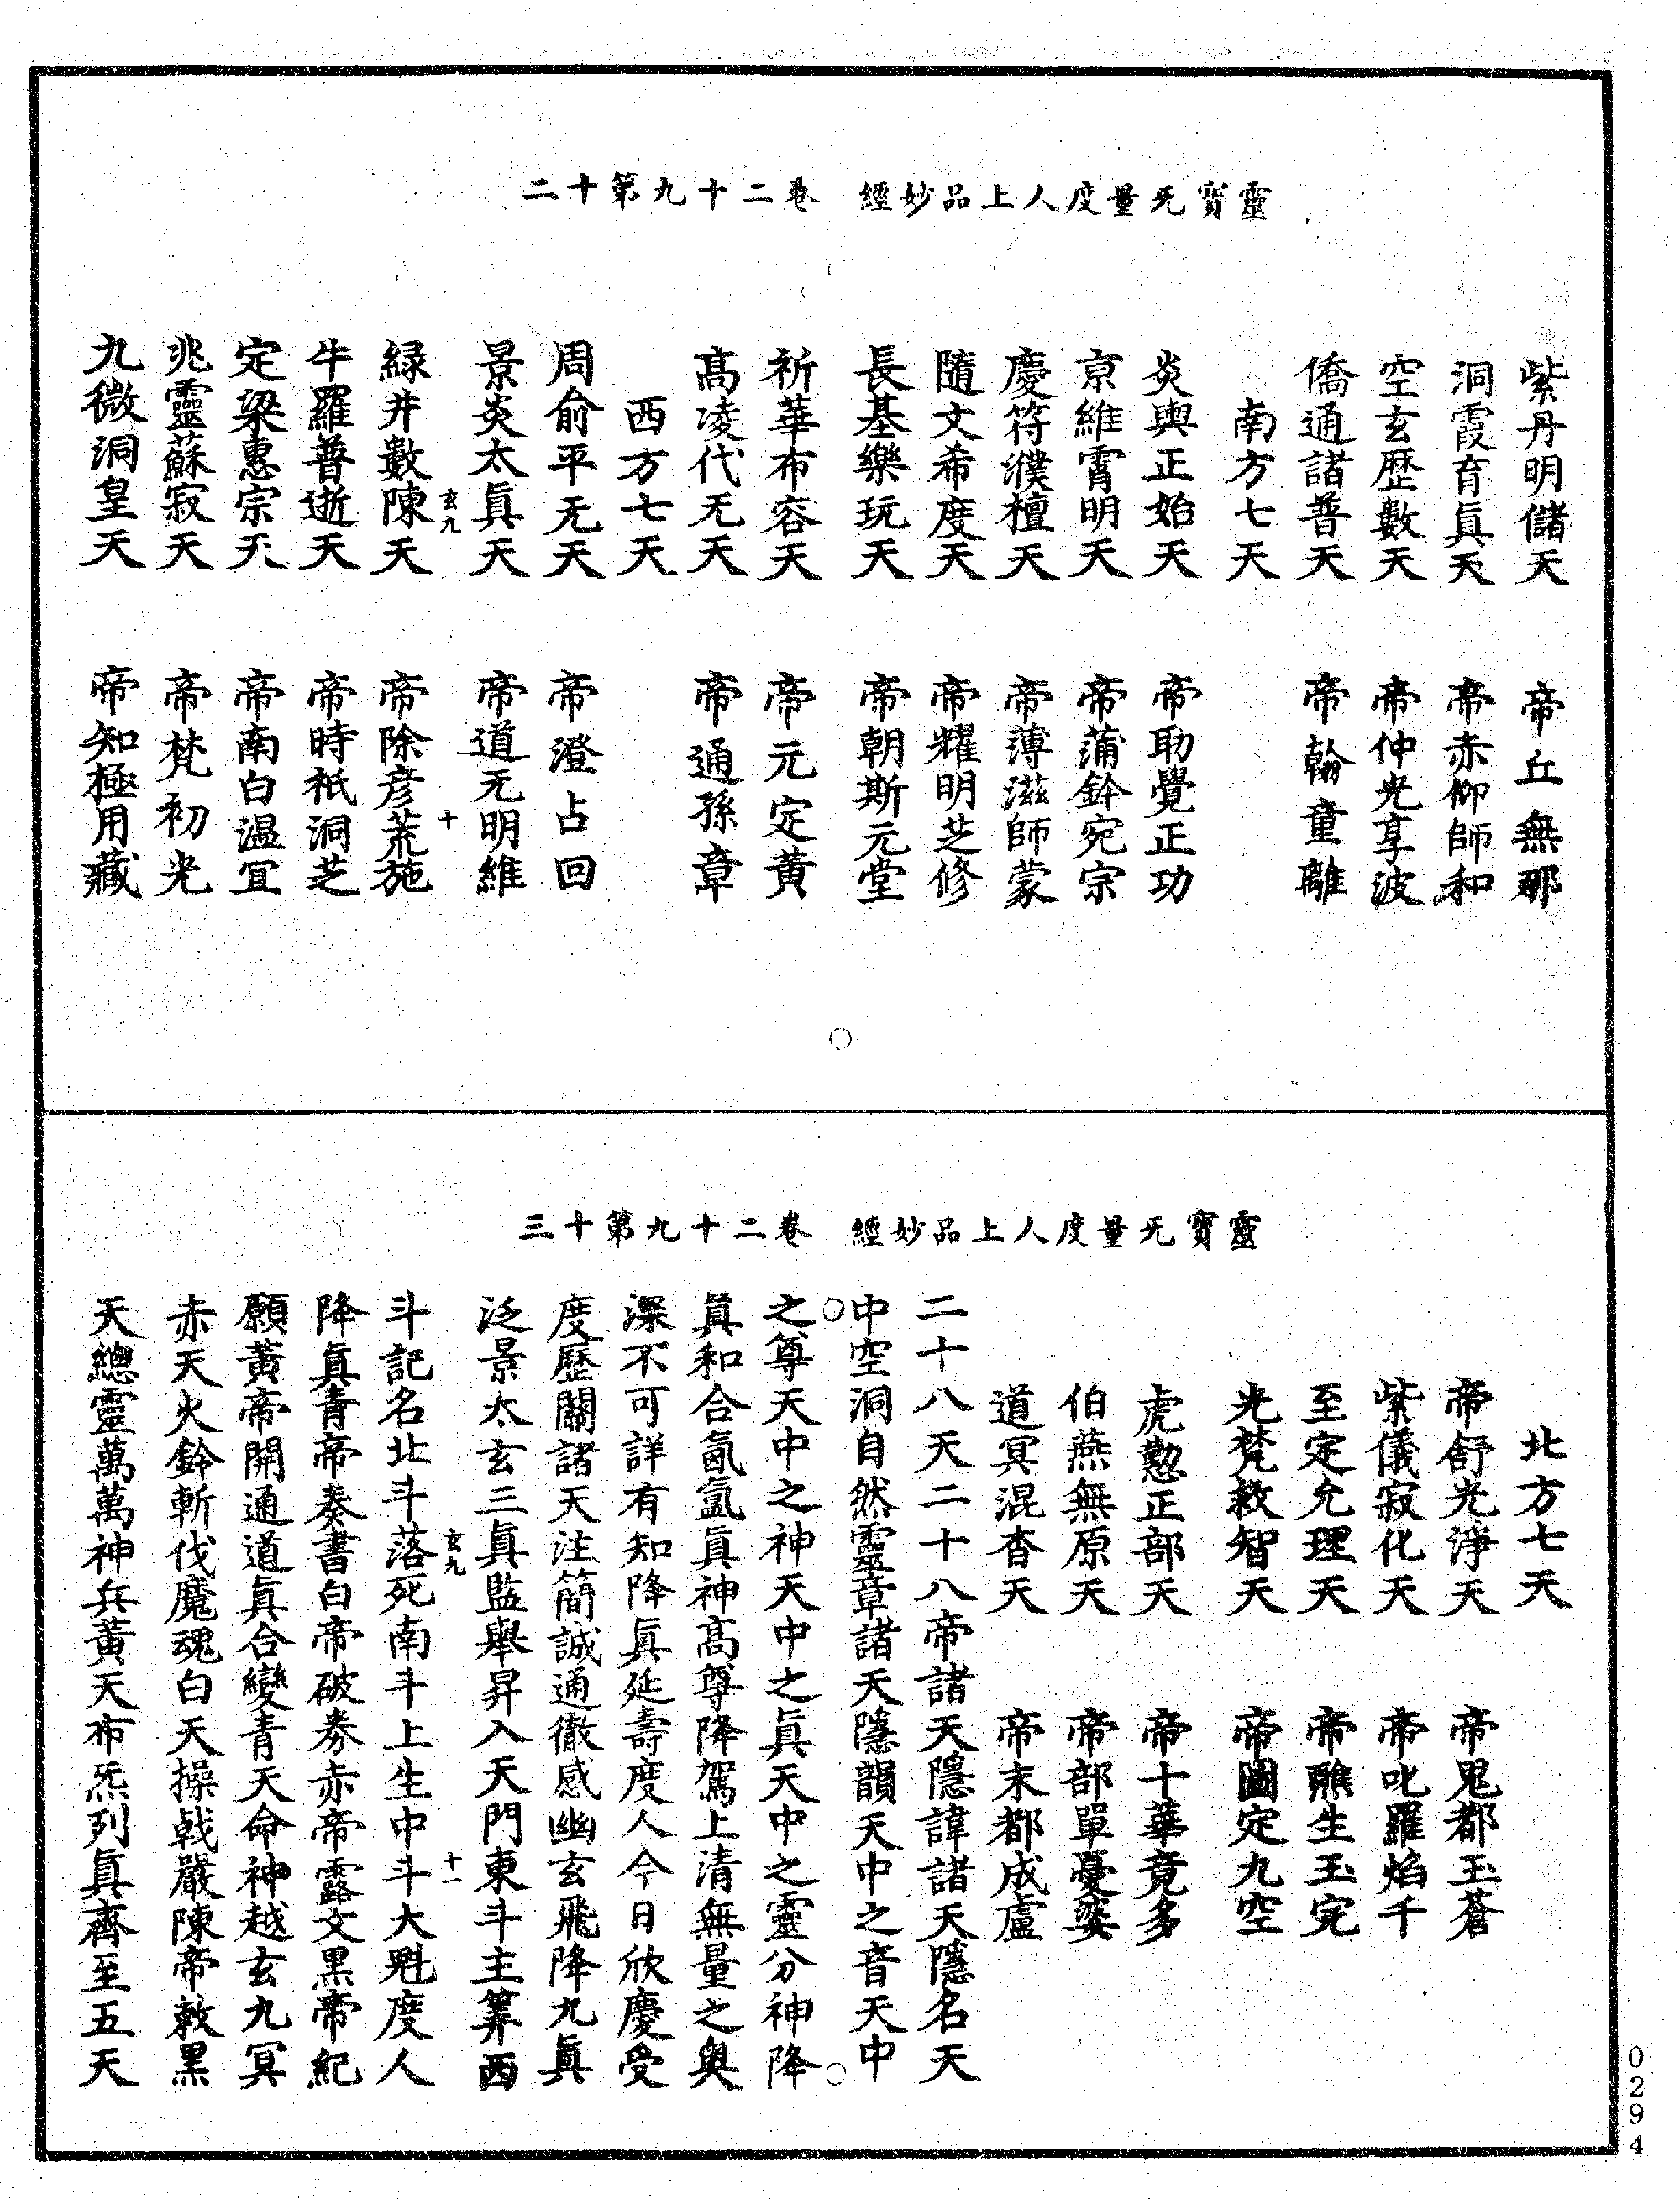 靈寶无量度人上品妙經　卷二十九第十二
紫丹明儲天　帝丘無那
洞霞育眞天　帝赤仰師和
空玄歷數天　帝仲光享波
僑通諸普天　帝翰童離
南方七天
炎輿正始天　帝劯覺正功
京維霄明天　帝蒲鈐宛宗
慶符濮檀天　帝薄滋師蒙
隨文希度天　帝耀明芝修
長基樂玩天　帝朝斯元堂
祈華布容天　帝元定黃
髙凌代无天　帝通孫章
西方七天
周俞平无天　帝澄占回
景炎太眞天　帝道无明維
玄九　十
緑井數陳天　帝除彦荒施
牛羅普逝天　帝時祇洞芝
定梁惠宗天　帝南白温冝
兆靈蘇寂天　帝梵初光
九微洞皇天　帝知極用藏
靈寶无量度人上品妙經　卷二十九第十三
北方七天
帝舒光淨天　帝鬼都玉蒼
紫儀寂化天　帝叱羅焰千
至定允理天　帝醮生玉完
光梵救智天　帝圖定九空
虎懃正部天　帝十華竟多
伯燕無原天　帝部單憂婆
道冥混杳天　帝末都成盧
二十八天二十八帝諸天隱諱諸天隱名天
中空洞自然靈章諸天隱韻天中之音天中
之尊天中之神天中之眞天中之靈分神降
眞和合氤氳眞神髙尊降駕上清無量之奥
深不可詳有知降眞延壽度人今日欣慶受
度歷關諸天注簡誠通徹感幽玄飛降九眞
泛景太玄三眞監舉昇入天門東斗主筭西
玄九　十一
斗記名北斗落死南斗上生中斗大魁度人
降眞青帝奏書白帝破券赤帝露文黒帝紀
願黃帝開通道眞合變青天命神越玄九冥
赤天火鈴斬伐魔魂白天操戟嚴陳帝敕黒
天總靈萬萬神兵黃天布炁列眞齊至五天
0294